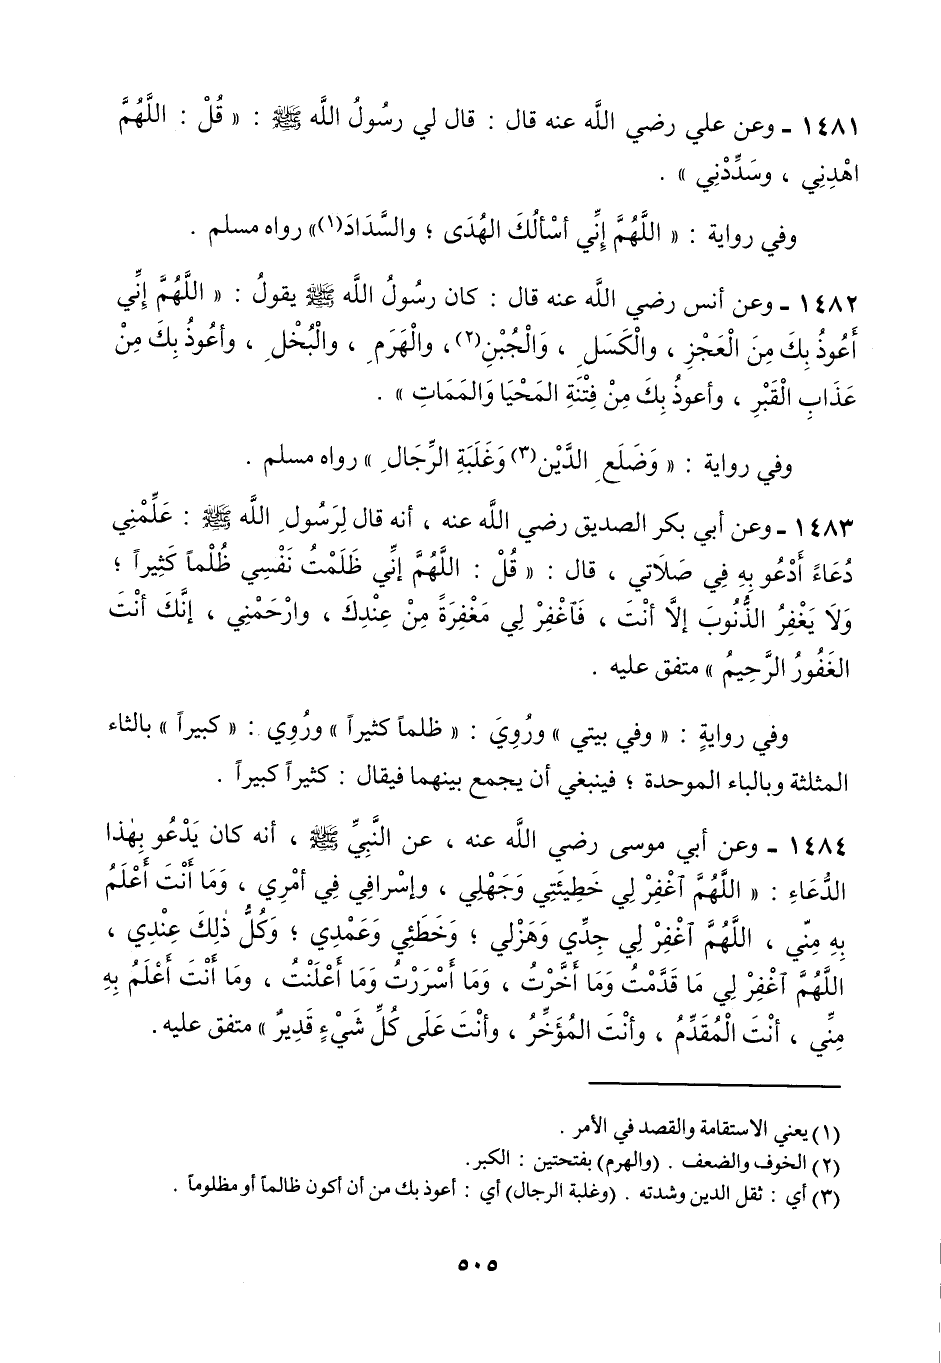 ١٤٨١ ـ وعن علي رضي اللَّه عنه قال : قال لي رسُولُ اللَّه ﷺ : « قُلْ : اللَّهُمَّ
اهْدِنِي ، وسَدِّدْنِي » .
وفي رواية : « اللَّهُمَّ إنِّي أسْألُكَ الهُدَى ؛ والسَّدَادَ(١)» رواه مسلم .
١٤٨٢ ـ وعن أنس رضي اللَّه عنه قال : كان رسُولُ اللَّه ﷺ يقولُ : « اللَّهُمَّ إنِّي
أَعُوذُ بِكَ مِنَ الْعَجْزِ ، والْكَسَلِ ، وَالْجُبْنِ(٢)، والْهَرَمِ ، والْبُخْلِ ، وأعُوذُ بِكَ مِنْ
عَذَابِ الْقَبْرِ ، وأعوذُ بِكَ مِنْ فِتْنَةِ المَحْيَا وَالمَمَاتِ » .
وفي رواية : « وَضَلَعِ الدَّيْنِ(٣) وَغَلَبَةِ الرِّجَالِ » رواه مسلم .
١٤٨٣ ـ وعن أبي بكر الصديق رضي اللَّه عنه ، أنه قال لِرَسُولِ اللَّه ﷺ : عَلِّمْنِي
دُعَاءً أَدْعُو بِهِ فِي صَلَاتي ، قال : « قُلْ : اللَّهُمَّ إنِّي ظَلَمْتُ نَفْسِي ظُلْماً كَثِيراً ؛
وَلَا يَغْفِرُ الذُّنُوبَ إلَّا أنْتَ ، فَٱغْفِرْ لِي مَغْفِرَةً مِنْ عِنْدِكَ ، وارْحَمْنِي ، إنَّكَ أنْتَ
الغَفُورُ الرَّحِيمُ » متفق عليه .
وفي روايةٍ : « وفي بيتي » ورُوِيَ : « ظلماً كثيراً » ورُوِي : « كبيراً » بالثاء
المثلثة وبالباء الموحدة ؛ فينبغي أن يجمع بينهما فيقال : كثيراً كبيراً .
١٤٨٤ ـ وعن أبي موسى رضي اللَّه عنه ، عن النَّبِيِّ ﷺ ، أنه كان يَدْعُو بِهٰذا
الدُّعَاءِ : « اللَّهُمَّ ٱغْفِرْ لِي خَطِيئَتِي وَجَهْلِي ، وإسْرافِي فِي أمْرِي ، وَمَا أَنْتَ أَعْلَمُ
بِهِ مِنِّي ، اللَّهُمَّ ٱغْفِرْ لِي جِدِّي وَهَزْلي ؛ وَخَطَئِي وَعَمْدِي ؛ وَكُلُّ ذٰلِكَ عِنْدِي ،
اللَّهُمَّ ٱغْفِرْ لِي مَا قَدَّمْتُ وَمَا أَخَّرْتُ ، وَمَا أَسْرَرْتُ وَمَا أَعْلَنْتُ ، ومَا أَنْتَ أَعْلَمُ بِهِ
مِنِّي ، أنْتَ الْمُقَدِّمُ ، وأنْتَ المُؤَخِّرُ ، وأنْتَ عَلَى كُلِّ شَيْءٍ قَدِيرٌ » متفق عليه.
(١) يعني الاستقامة والقصد في الأمر .
(٢) الخوف والضعف . (والهرم) بفتحتين : الكبر.
(٣) أي : ثقل الدين وشدته . (وغلبة الرجال) أي : أعوذ بك من أن أكون ظالماً أو مظلوماً .
٥٠٥